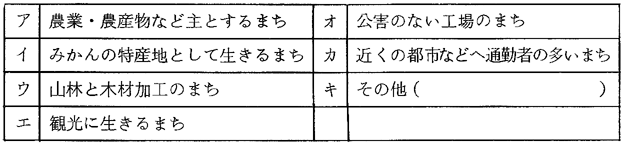 ア 農業・農産物など主とするまち オ 公害のない工場のまち
イ みかんの特産地として生きるまち カ 近くの都市などへ通勤者の多いまち
ウ 山林と木材加工のまち キ その他（　　　　　　　　　）
エ 観光に生きるまち